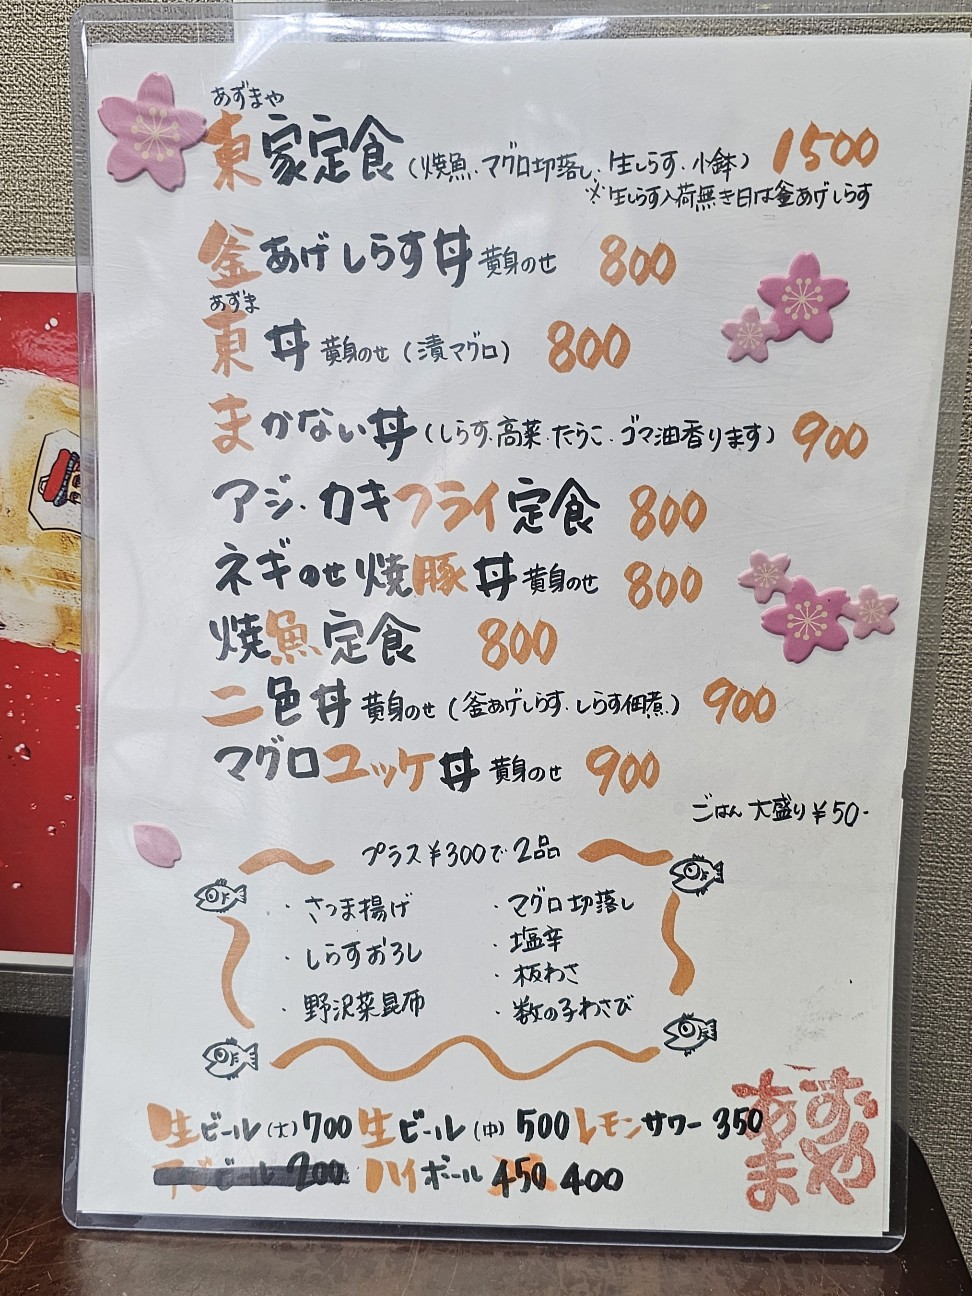 あずまや
東家定食(焼魚.マグロ切落し.生しらす.小鉢) 1500
※生しらす入荷無き日は釜あげしらす
釜あげしらす丼 黄身のせ 800
あずま
東丼 黄身のせ(漬マグロ) 800
まかない丼(しらす.高菜.たらこ.ゴマ油香ります) 900
アジ.カキフライ定食 800
ネギのせ焼豚丼 黄身のせ 800
焼魚定食 800
二色丼 黄身のせ(釜あげしらす.しらす佃煮) 900
マグロユッケ丼 黄身のせ 900
ごはん 大盛り¥50-
プラス¥300で2品
・さつま揚げ
・しらすおろし
・野沢菜昆布
・マグロ切落し
・塩辛
・板わさ
・数の子わさび
生ビール(大)700 生ビール(中)500 レモンサワー 350
ビール 700 ハイボール 450 400
あずまや